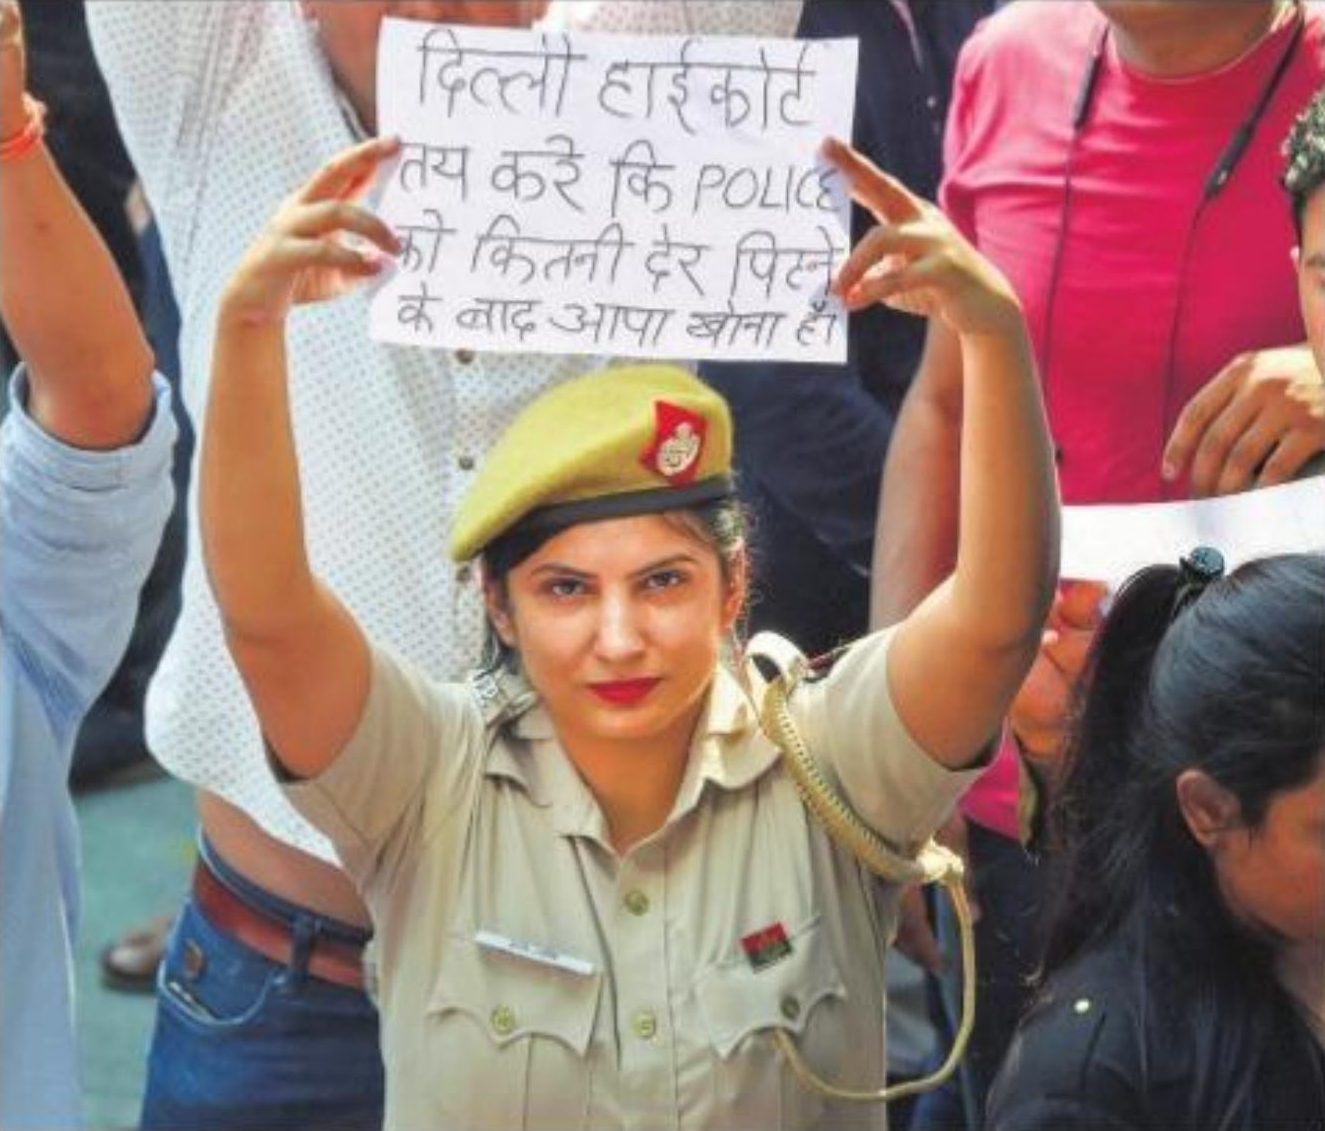 दिल्ली हाईकोर्ट
तय करे कि POLICE
को कितनी देर पिटने
के बाद आपा खोना है।